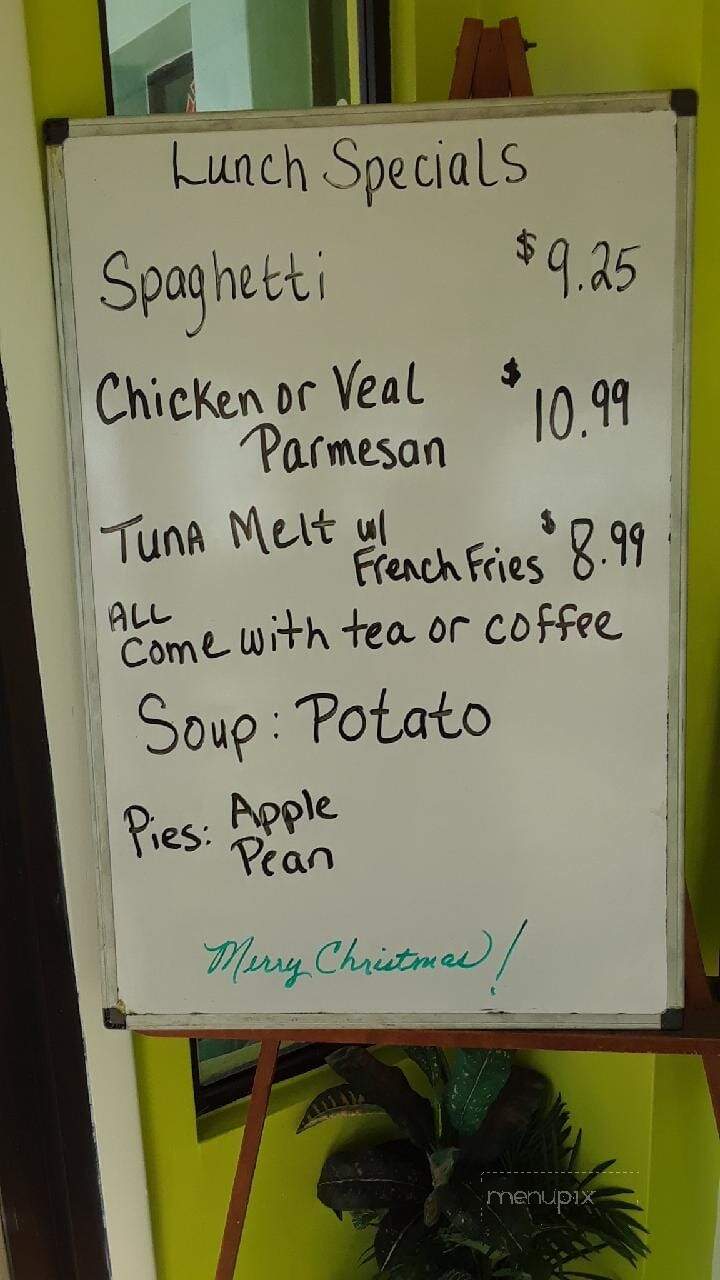 Lunch Specials
Spaghetti $9.25
Chicken or Veal $10.99
Parmesan
Tuna Melt w/
French Fries $8.99
ALL
Come with tea or coffee
Soup: Potato
Pies: Apple
Pean
Merry Christmas!
menupix